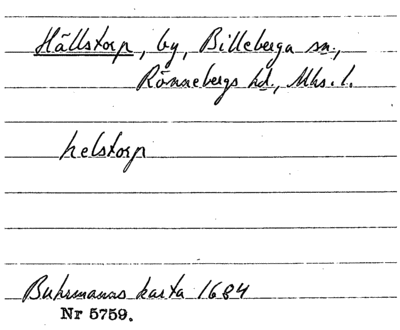 Hällstorp, by, Billeberga sn.,
Rönnebergs hd., Mhs. l.
helstorp
Buhrmanns karta 1684
Nr 5759.